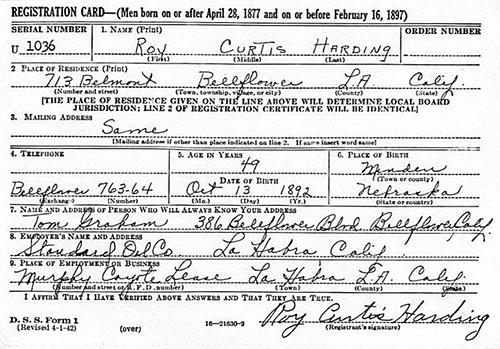 REGISTRATION CARD—(Men born on or after April 28, 1877 and on or before February 16, 1897)
SERIAL NUMBER 1. NAME (Print) ORDER NUMBER
U 1036 Roy Curtis Harding
(First) (Middle) (Last)
2 PLACE OF RESIDENCE (Print)
713 Belmont Bellflower L.A. Calif.
(Number and street) (Town, township, village, or city) (County) (State)
[THE PLACE OF RESIDENCE GIVEN ON THE LINE ABOVE WILL DETERMINE LOCAL BOARD
JURISDICTION; LINE 2 OF REGISTRATION CERTIFICATE WILL BE IDENTICAL]
3. MAILING ADDRESS
Same
[Mailing address if other than place indicated on line 2. If same insert word same]
4. TELEPHONE 5. AGE IN YEARS 6. PLACE OF BIRTH
49 Minden
DATE OF BIRTH (Town or county)
Bellflower 763-64 Oct 13 1892 Nebraska
(Exchange) (Number) (Mo.) (Day) (Yr.) (State or country)
7. NAME AND ADDRESS OF PERSON WHO WILL ALWAYS KNOW YOUR ADDRESS
Tom Graham 386 Bellflower Blvd. Bellflower, Calif.
8. EMPLOYER'S NAME AND ADDRESS
Standard Oil Co. La Habra Calif.
9. PLACE OF EMPLOYMENT OR BUSINESS
Murphy Coyote Lease La Habra L.A. Calif.
(Number and street or R. F. D. number) (Town) (County) (State)
I AFFIRM THAT I HAVE VERIFIED ABOVE ANSWERS AND THAT THEY ARE TRUE.
D. S. S. Form 1
(Revised 4-1-42) (over) 16—21630-2
Roy Curtis Harding
(Registrant's signature)